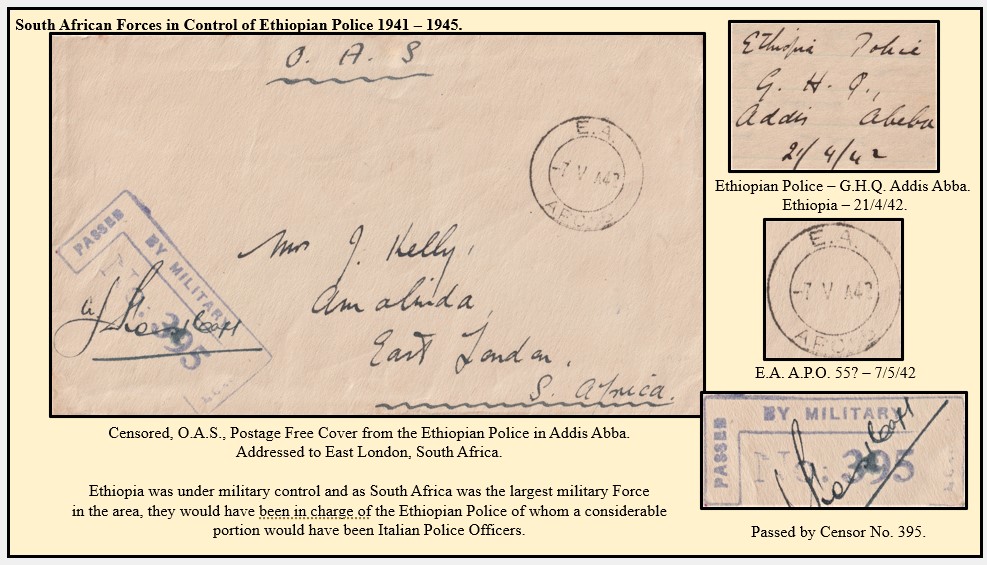 South African Forces in Control of Ethiopian Police 1941 – 1945.
O. A. S
E.A.
-7 V A42
PASSED
BY MILITARY
No. 395
Mrs J. Kelly,
Amalinda,
East London.
S. Africa.
Ethiopia Police
G. H. Q.,
Addis Abeba
21/4/42
Ethiopian Police – G.H.Q. Addis Abba.
Ethiopia – 21/4/42.
E.A.
-7 V A42
E.A. A.P.O. 55? – 7/5/42
PASSED
BY MILITARY
No. 395
Passed by Censor No. 395.
Censored, O.A.S., Postage Free Cover from the Ethiopian Police in Addis Abba.
Addressed to East London, South Africa.
Ethiopia was under military control and as South Africa was the largest military Force
in the area, they would have been in charge of the Ethiopian Police of whom a considerable
portion would have been Italian Police Officers.